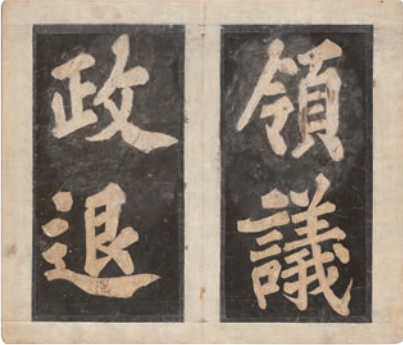 領議
政退